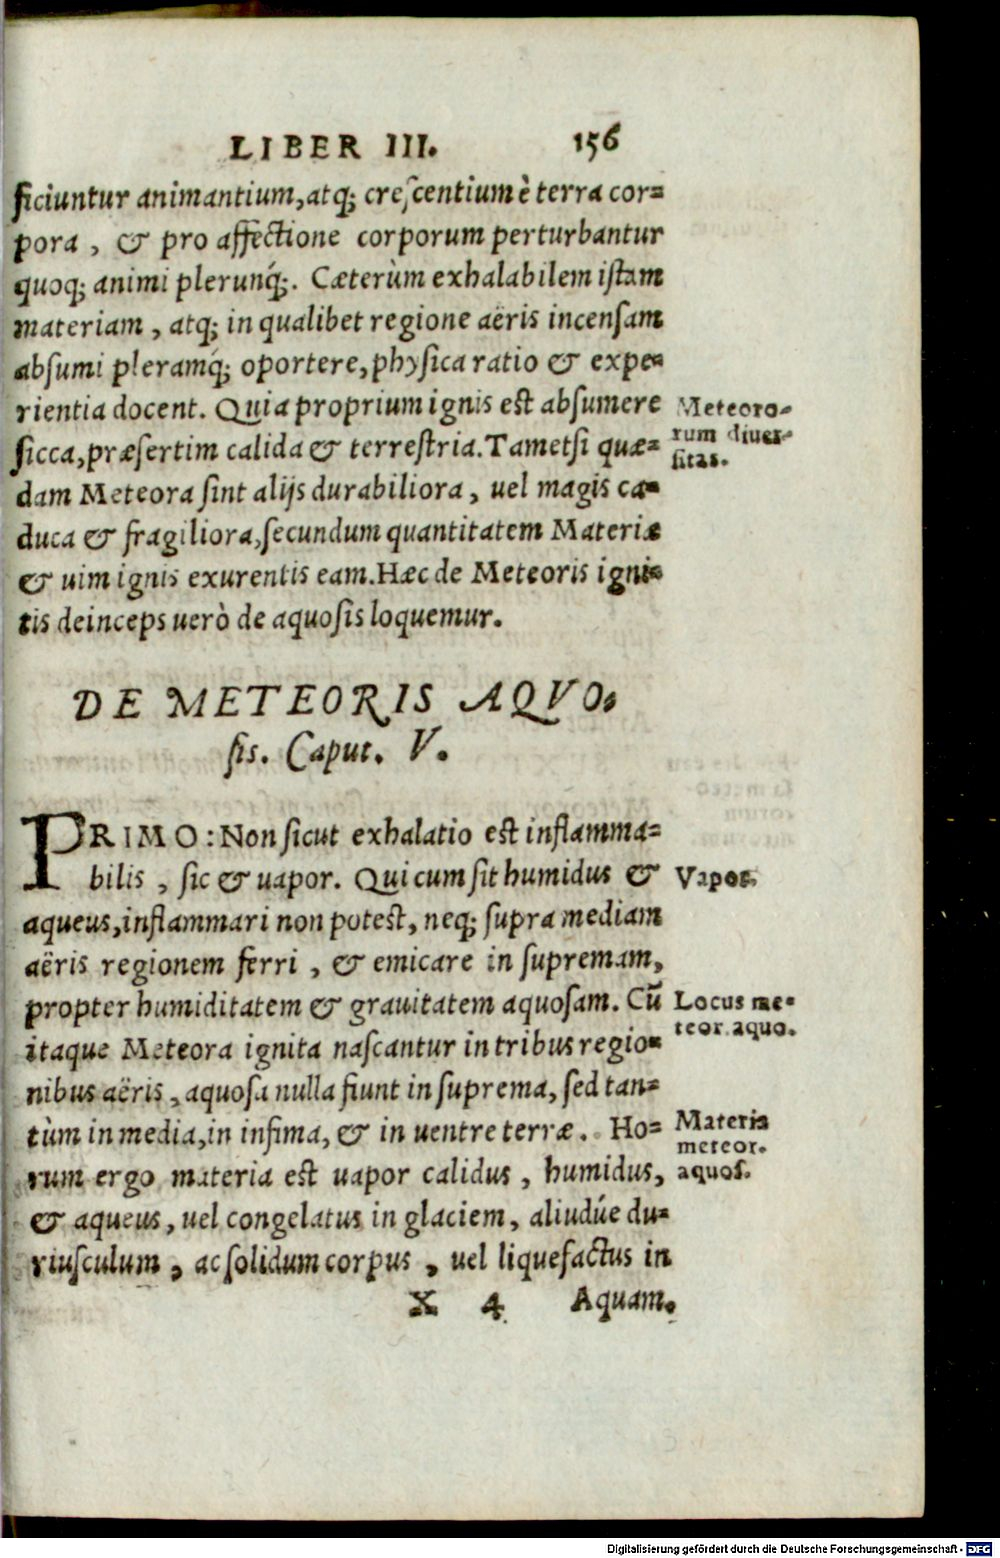 LIBER III. 156
ficiuntur animantium, atq; crescentium è terra cor-
pora, & pro affectione corporum perturbantur
quoq; animi plerunq́;. Cæterùm exhalabilem istam
materiam, atq; in qualibet regione aëris incensam
absumi pleramq́; oportere, physica ratio & expe-
rientia docent. Quia proprium ignis est absumere
Meteoro-
sicca, præsertim calida & terrestria. Tametsi quæ-
rum diuer-
sitas.
dam Meteora sint alijs durabiliora, uel magis ca-
duca & fragiliora, secundum quantitatem Materiæ
& uim ignis exurentis eam. Hæc de Meteoris igni-
tis deinceps uerò de aquosis loquemur.
DE METEORIS AQVO-
sis. Caput. V.
PRIMO: Non sicut exhalatio est inflamma-
bilis, sic & uapor. Qui cum sit humidus &
Vapor.
aqueus, inflammari non potest, neq; supra mediam
aëris regionem ferri, & emicare in supremam,
propter humiditatem & grauitatem aquosam. Cũ
Locus me-
teor. aquo.
itaque Meteora ignita nascantur in tribus regio-
nibus aëris, aquosa nulla fiunt in suprema, sed tan-
tùm in media, in infima, & in uentre terræ. Ho-
Materia
meteor.
aquos.
rum ergo materia est uapor calidus, humidus,
& aqueus, uel congelatus in glaciem, aliudúe du-
riusculum, ac solidum corpus, uel liquefactus in
X 4 Aquam.
Digitalisierung gefördert durch die Deutsche Forschungsgemeinschaft - DFG